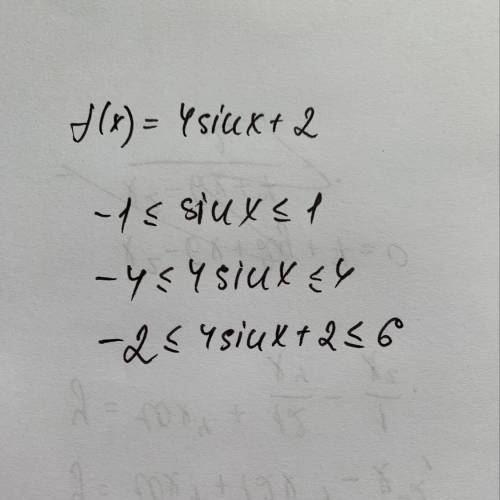 f(x) = 4sinx + 2
-1 ≤ sinx ≤ 1
-4 ≤ 4sinx ≤ 4
-2 ≤ 4sinx + 2 ≤ 6